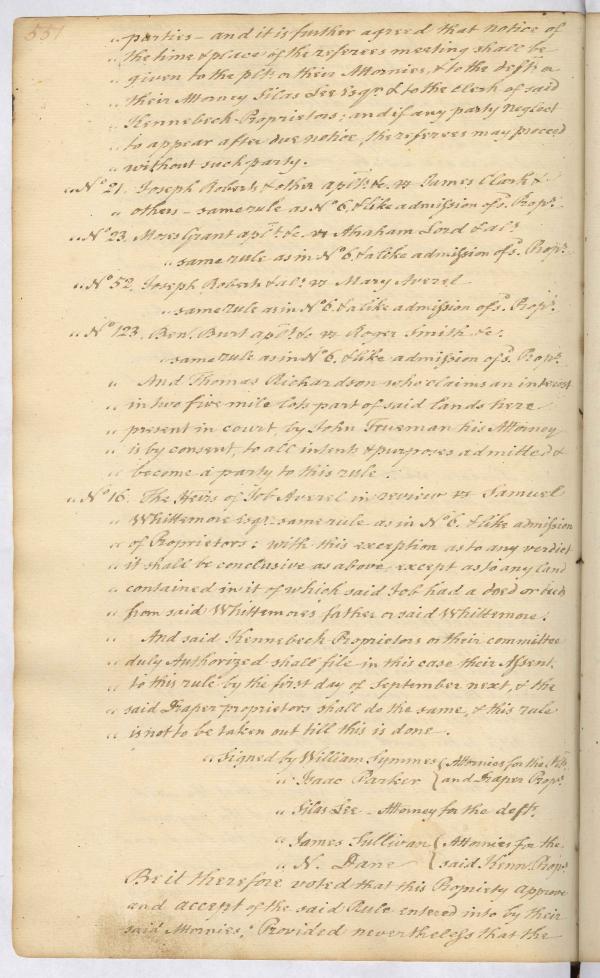 551
" parties – and it is further agreed that notice of
" the time & place of the referees meeting shall be
" given to the plts or their Attornies, & to the defts or
" their Attorney Silas Lee Esqr & to the Clerk of said
" Kennebeck Proprietors; and if any party neglect
" to appear after due notice, the referees may proceed
" without such party.
" No 21. Joseph Roberts & other aplts &c. vs James Clark &
" others – same rule as No 6, & like admission of sd Proprs
" No 23. Moses Grant aplt &c vs Abraham Lord & als
" same rule as in No 6. & a like admission of sd Proprs
" No 52. Joseph Roberts & als vs Mary Averel
" same rule as in No 6. & a like admission of sd Proprs
" No 123. Benj. Burt aplt &c vs Roger Smith &c.
" same rule as in No 6. & like admission of sd Proprs
" And Thomas Rickardson who claims an interest
" in two five mile lots part of said lands here
" present in court, by John Trueman his Attorney
" is by consent, to all intents & purposes admitted &
" become a party to this rule.
" No 16. The Heirs of Job Averel in review vs Samuel
" Whittemore Esqr. same rule as in No 6. & like admission
" of Proprietors: with this exception as to any verdict
" it shall be conclusive as above, except as to any land
" contained in it of which said Job had a deed or
" from said Whittemores father or said Whittemore.
" And said Kennebeck Proprietors or their committee
" duly Authorized shall file in this case their Assent
" to this rule by the first day of September next, & the
" said Draper proprietors shall do the same, & this rule
" is not to be taken out till this is done.
" Signed by William Symmes { Attornies for the Plts
" Isaac Parker } and Draper Proprs
" Silas Lee – Attorney for the defts.
" James Sullivan { Attornies for the
" N. Dane { said Kenn. Proprs
Be it therefore voted that this Propriety approve
and accept of the said Rule entered into by their
said Attornies; Provided nevertheless that the